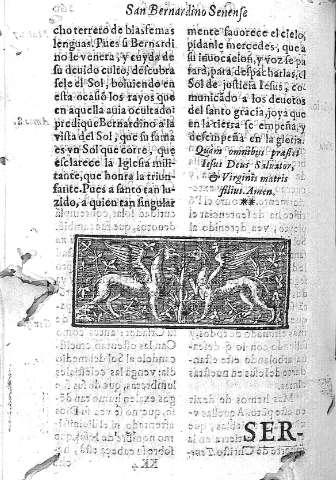 San Bernardino Senense
cho terrero de blasfemas
lenguas. Pues si Bernardi
no le venera, y cuyda de
su deuido culto, descubra
sele el Sol, boluiendo en
esta ocasió los rayos que
en aquella auia ocultado:
predique Bernardino a la
vista del Sol, que su fama
es vn Sol que corre, que
esclarece la Iglesia mili-
tante, que honra la triun-
fante. Pues a santo tan lu-
zido, a quien tan singular
mente fauorece el cielo,
pidanle mercedes, que a
su inuocacion, y voz se pa
rará, para despacharlas, el
Sol de justicia Iesus, co-
municado a los deuotos
del santo gracia, joya que
en la tierra se empeña, y
desempeña en la gloria.
Quam omnibus præstet
Iesus Deus Saluator,
& Virginis matris
filius. Amen.
**
SER-